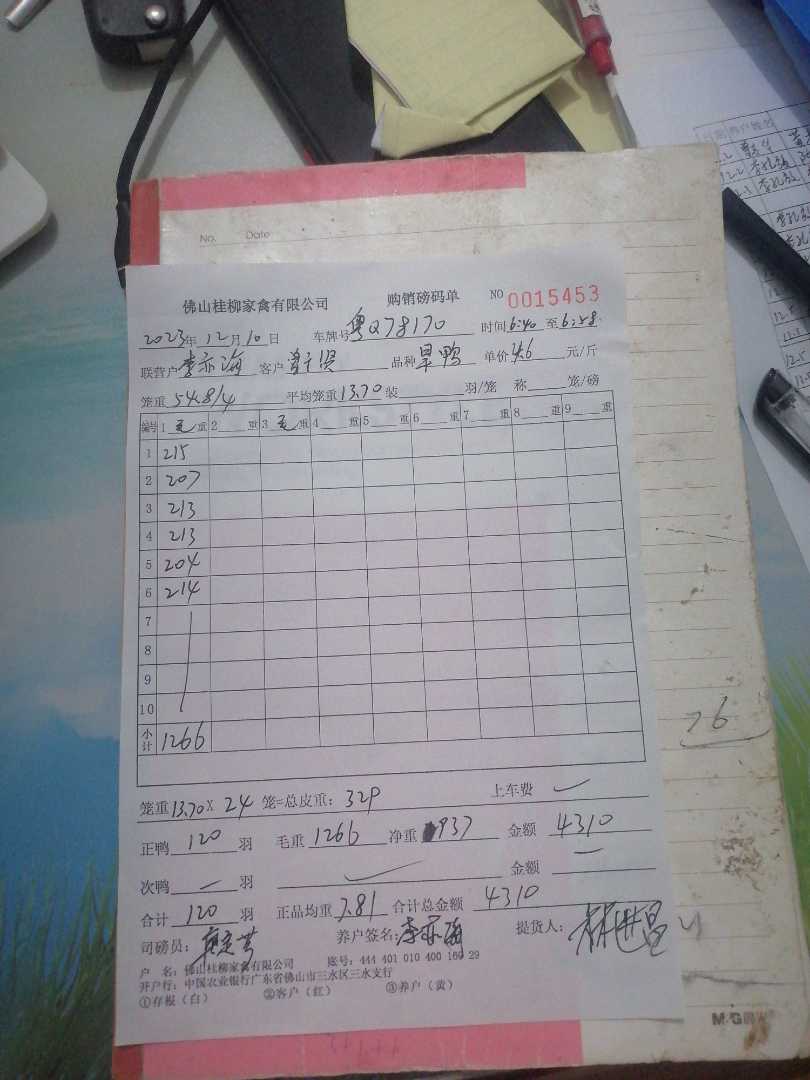 No. Date
佛山桂柳家禽有限公司 购销磅码单 NO 0015453
2023年12月10日 车牌号粤Q78170 时间6:40至6:58
联营户李亦海 客户 品种旱鸭 单价4.6元/斤
笼重54.8/4 平均笼重13.70装 羽/笼 称 笼/磅
编号 1毛重 2 重 3毛重 4 重 5 重 6 重 7 重 8 重 9 重
1 215
2 207
3 213
4 213
5 204
6 214
7
8
9
10
小计 1266
笼重13.70X 24笼=总皮重:329 上车费
正鸭120羽 毛重1266 净重937 金额4310
次鸭 羽 金额
合计120羽 正品均重7.81 合计总金额4310
司磅员: 养户签名:李亦海 提货人:
户 名:佛山桂柳家禽有限公司 账号:444 401 010 400 169 29
开户行:中国农业银行广东省佛山市三水区三水支行
①存根(白) ②客户(红) ③养户(黄)
76
M&G